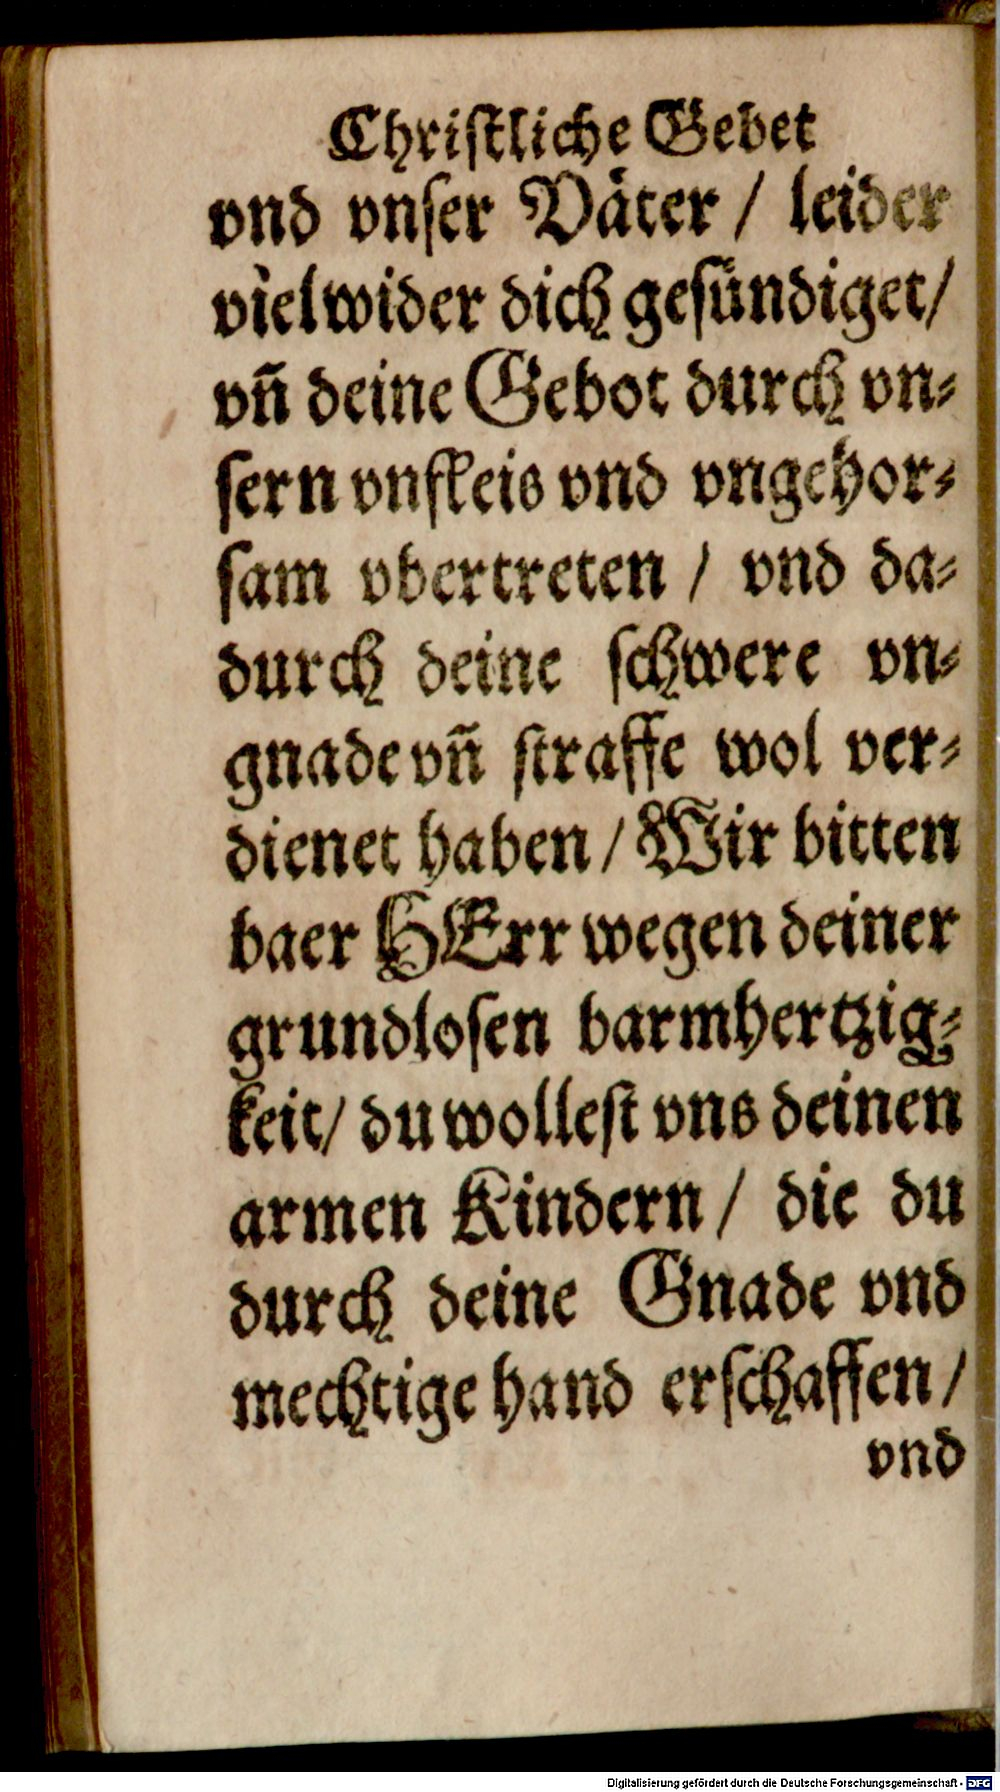 Chriſtliche Gebet
vnd vnſer Väter / leider
viel wider dich geſündiget/
vñ deine Gebot durch vn⸗
ſern vnfleis vnd vngehor⸗
ſam vbertreten / vnd da⸗
durch deine ſchwere vn⸗
gnade vñ ſtraffe wol ver⸗
dienet haben / Wir bitten
baer HErr wegen deiner
grundloſen barmhertzig⸗
keit/ du wolleſt vns deinen
armen Kindern / die du
durch deine Gnade vnd
mechtige hand erſchaffen /
vnd
Digitalisierung gefördert durch die Deutsche Forschungsgemeinschaft - DFG